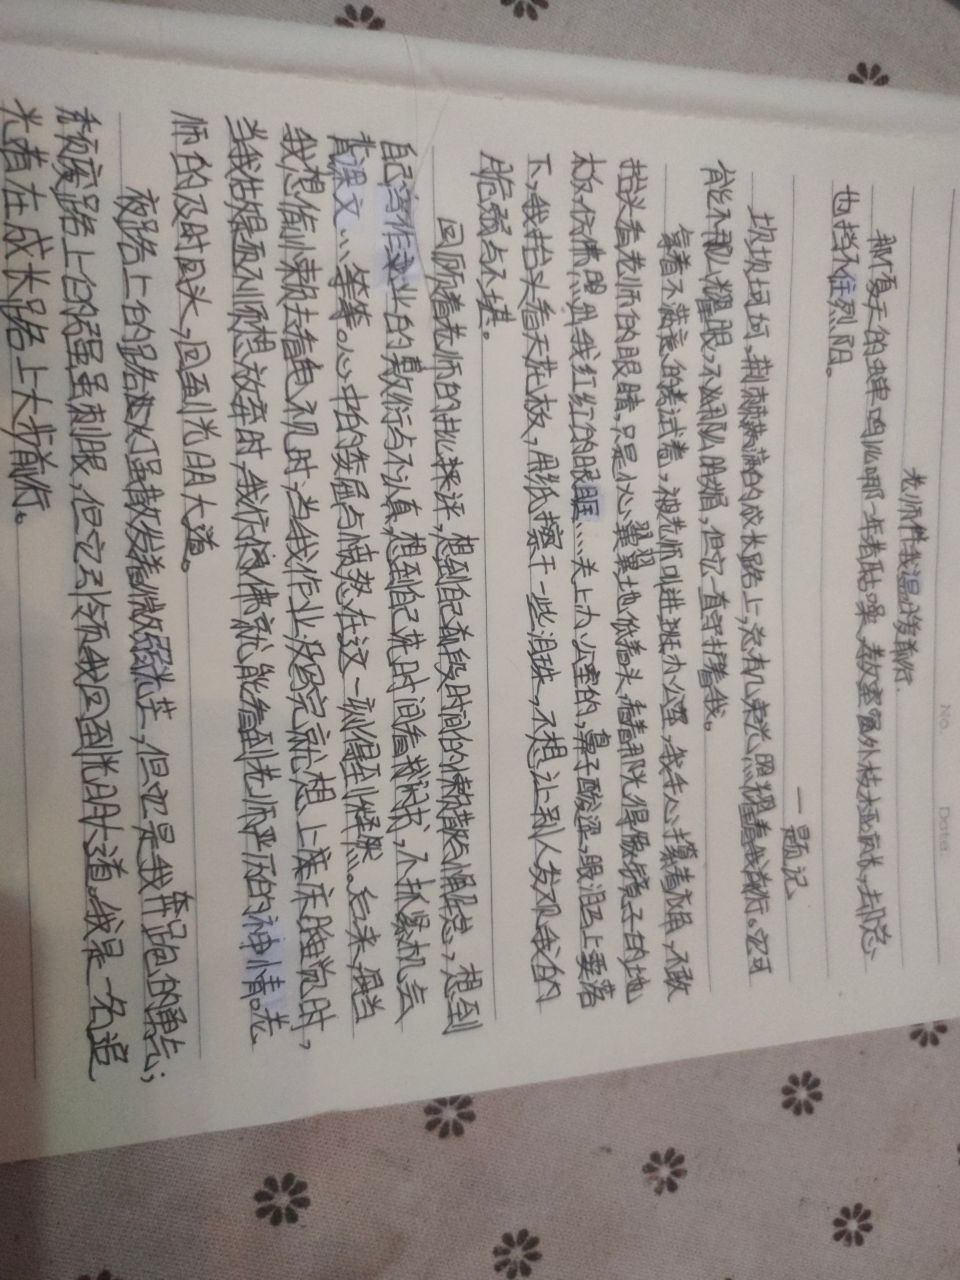 No.
Date.
老师伴我温暖前行.
那夏天的蝉鸣比哪一年都聒噪,教室窗外枝桠疯长,却总
也挡不住烈阳。
一题记。
坎坎坷坷,荆棘满满的成长路上,总有几束光照耀着我前行。它可
能不那么耀眼,不那么眼,但它一直守护着我。
拿着不满意的考试卷,被老师叫进班办公室,我手心攥着衣角,不敢
抬头看老师的眼睛,只是小心翼翼地低着头,看着那光得像镜子的地
板,仿佛照出我红红的眼眶…关上办公室的,鼻子酸涩,眼泪马上要落
下,我抬头看天花板,用纸擦干一些泪珠,不想让别人发现我的
脆弱与不堪。
回顾着老师的批评,想到自己前段时间的懒散,想到
自己写作业的敷衍与不真,想到自己花时间看,不抓紧机会
背课文…等等。心中的委屈与愤怒在这一刻得到释然。后来,每当
我想偷懒去看电视时,当我作业没写完就想上床睡觉时,
当我钻提不顺想放弃时,我仿佛就能看到老师严厉的神情。老
师的及时回头,回到光明大道。
夜路上的路灯虽散发着微弱光芒,但它是我奔跑的勇气;
路上的强虽刺眼,但它引领我回到光明大道。我是一名追
光者在成长路上大步前行。